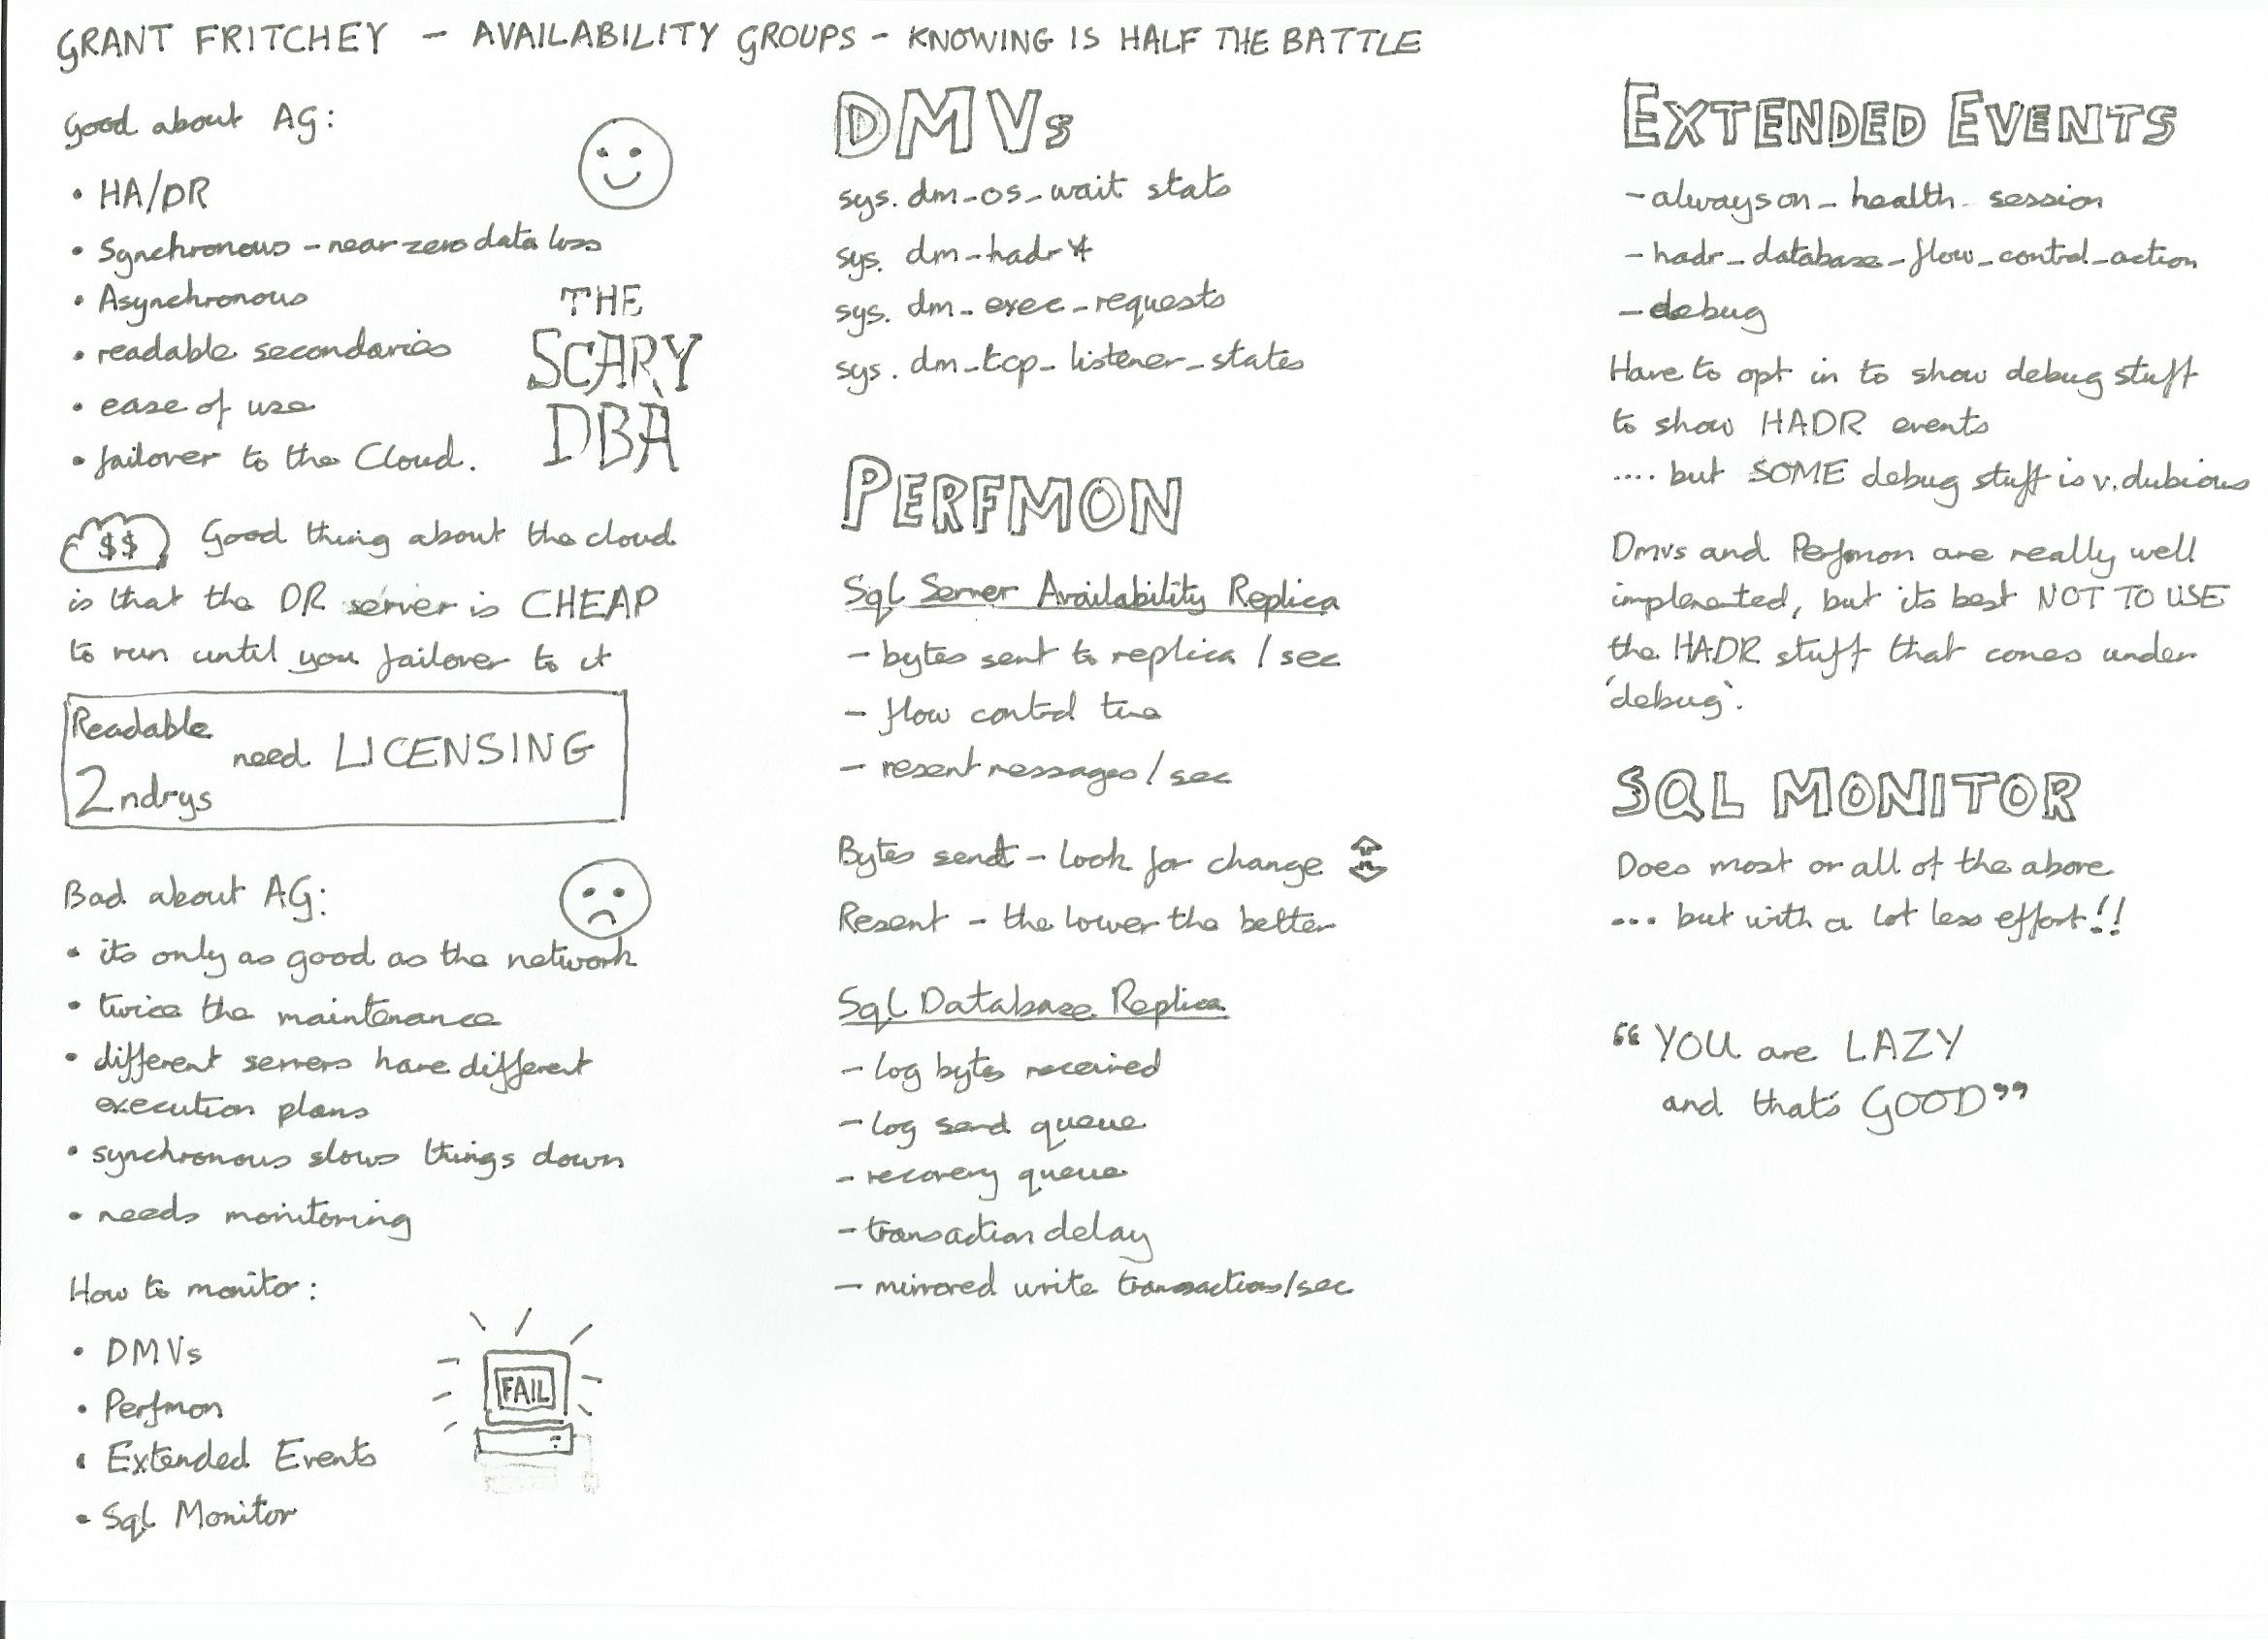 GRANT FRITCHEY - AVAILABILITY GROUPS - KNOWING IS HALF THE BATTLE
Good about AG:
• HA/DR
• Synchronous - near zero data loss
• Asynchronous
• readable secondaries
• ease of use
• failover to the Cloud.
THE
SCARY
DBA
$$ Good thing about the cloud
is that the DR server is CHEAP
to run until you failover to it
Readable
2ndrys
need LICENSING
Bad about AG:
• its only as good as the network
• twice the maintenance
• different servers have different
execution plans
• synchronous slows things down
• needs monitoring
How to monitor:
• DMVs
• Perfmon
• Extended Events
• Sql Monitor
FAIL
DMVs
sys.dm_os_wait stats
sys. dm_hadr*
sys. dm_exec_requests
sys. dm_tcp_listener_states
PERFMON
Sql Server Availability Replica
- bytes sent to replica / sec
- flow control time
- resent messages / sec
Bytes sent - look for change
Resent - the lower the better
Sql Database Replica
- log bytes received
- log send queue
- recovery queue
- transaction delay
- mirrored write transactions/sec
EXTENDED EVENTS
- alwayson_health_session
- hadr_database_flow_control_action
- debug
Have to opt in to show debug stuff
to show HADR events
.... but SOME debug stuff is v. dubious
Dmvs and Perfmon are really well
implemented, but its best NOT TO USE
the HADR stuff that comes under
'debug'.
SQL MONITOR
Does most or all of the above
... but with a lot less effort!!
“YOU are LAZY
and that's GOOD”